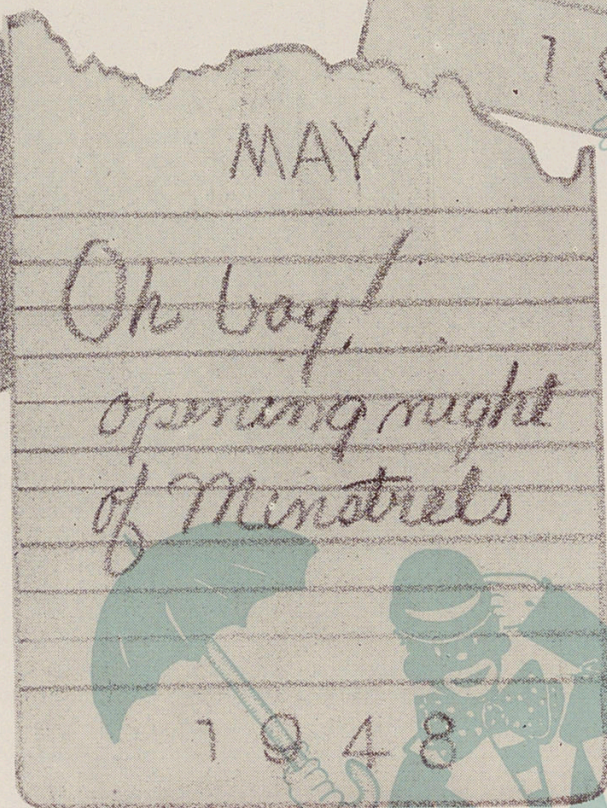 MAY
Oh boy!
opening night
of Minstrels
1948